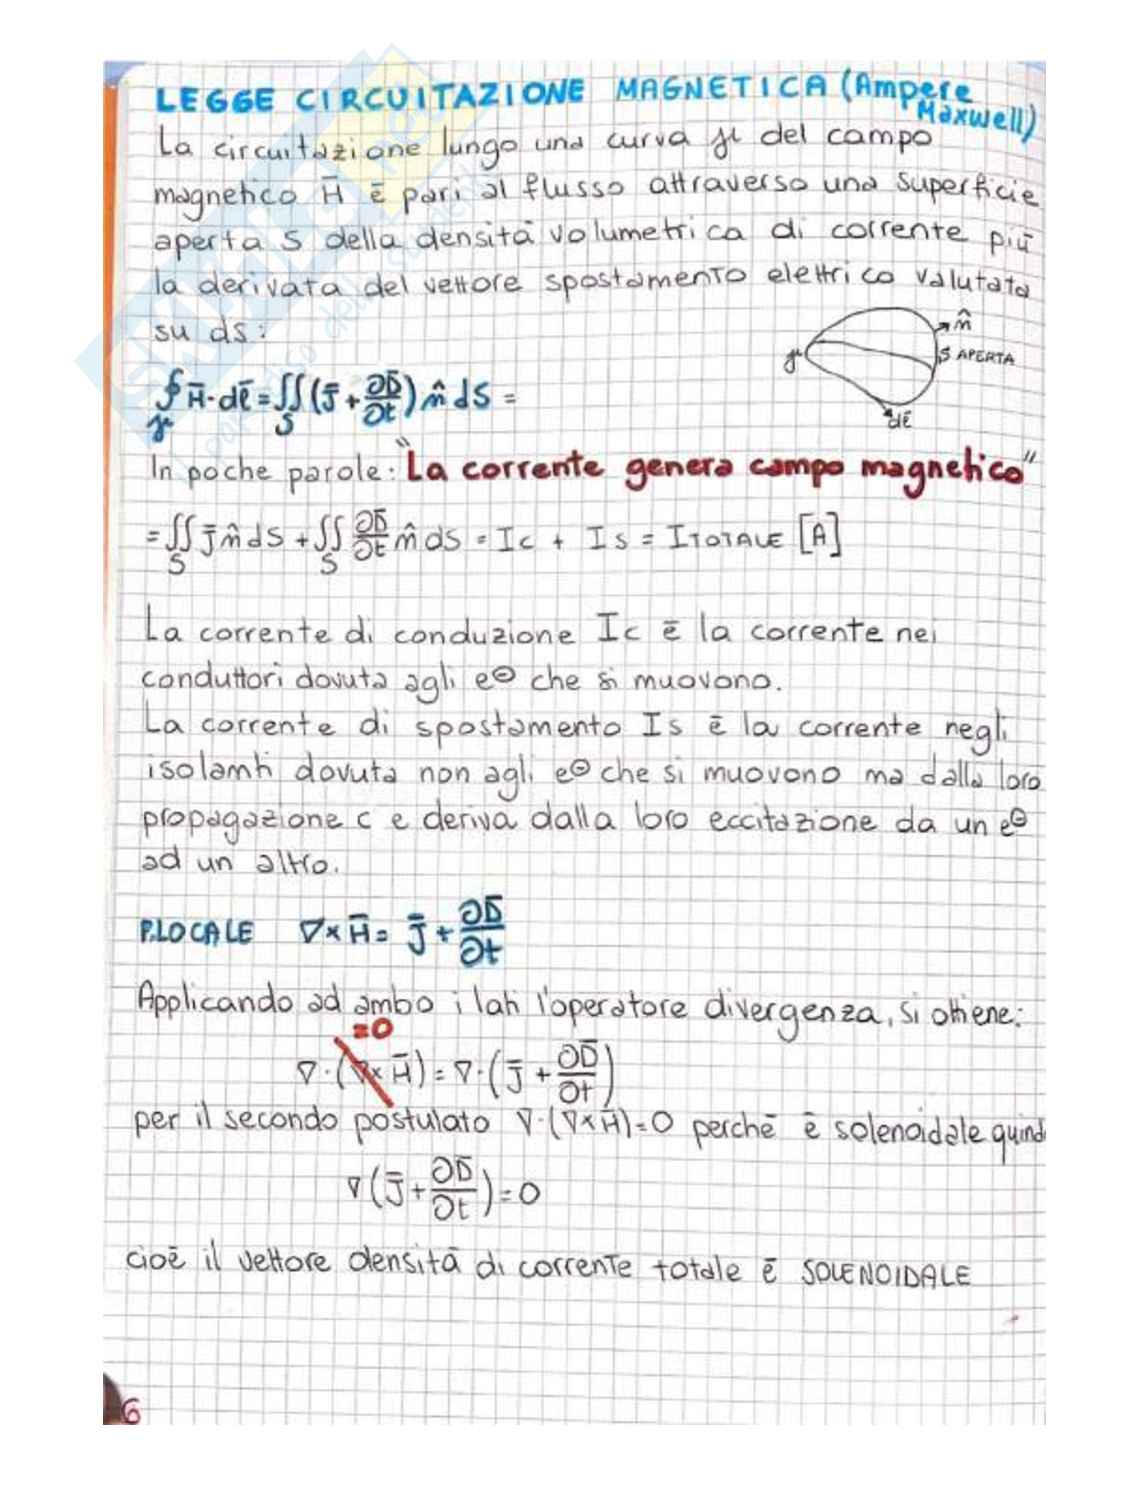 LEGGE CIRCUITAZIONE MAGNETICA (Ampere Maxwell)
La circuitazione lungo una curva γ del campo
magnetico H̄ ē pari al flusso attraverso una superficie
aperta S della densitā volumetrica di corrente piū
la derivata del vettore spostamento elettrico valutata
su ds:
n̂
S APERTA
γ
dē
∮γ H̄·dē = ∬S (J̄ + ∂D̄/∂t) n̂ dS =
In poche parole: "La corrente genera campo magnetico"
= ∬S J̄ n̂ dS + ∬S ∂D̄/∂t n̂ dS = Ic + Is = ITOTALE [A]
La corrente di conduzione Ic ē la corrente nei
conduttori dovuta agli e⊖ che si muovono.
La corrente di spostamento Is ē la corrente negli
isolanti dovuta non agli e⊖ che si muovono ma dalla loro
propagazione c e deriva dalla loro eccitazione da un e⊖
ad un altro.
P.LOCALE ∇×H̄ = J̄ + ∂D̄/∂t
Applicando ad ambo i lati l'operatore divergenza, si ottiene:
=0
∇·(∇×H̄) = ∇·(J̄ + ∂D̄/∂t)
per il secondo postulato ∇·(∇×H̄)=0 perchē ē solenoidale quindi
∇(J̄ + ∂D̄/∂t) = 0
cioē il vettore densitā di corrente totale ē SOLENOIDALE
6